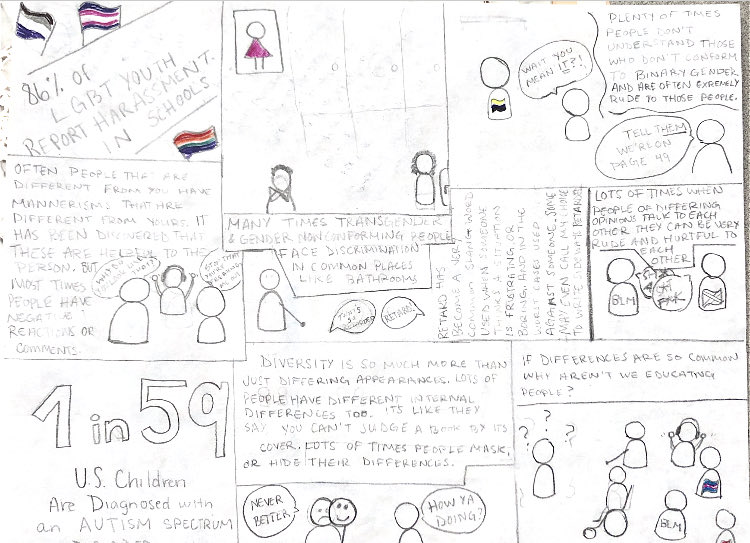 86% OF
LGBT YOUTH
REPORT HARASSMENT
IN SCHOOLS
MANY TIMES TRANSGENDER
& GENDER NONCONFORMING PEOPLE
FACE DISCRIMINATION
IN COMMON PLACES
LIKE BATHROOMS
WAIT YOU
MEAN IT?!
PLENTY OF TIMES
PEOPLE DON'T
UNDERSTAND THOSE
WHO DON'T CONFORM
TO BINARY GENDER
AND ARE OFTEN EXTREMELY
RUDE TO THOSE PEOPLE.
TELL THEM
WE'RE ON
PAGE 49
OFTEN PEOPLE THAT ARE
DIFFERENT FROM YOU HAVE
MANNERISMS THAT ARE
DIFFERENT FROM YOURS. IT
HAS BEEN DISCOVERED THAT
THESE ARE HELPFUL TO THE
PERSON. BUT
MOST TIMES
PEOPLE HAVE
NEGATIVE
REACTIONS OR
COMMENTS.
RETARD!
RETARD HAS
BECOME A VERY
COMMON SLANG WORD
USED WHEN SOMEONE
THINKS A SITUATION
IS FRUSTRATING OR
BORING, AND IN THE
WORST CASES USED
AGAINST SOMEONE. SOME
MAY EVEN CALL MY CHOICE
TO WRITE ABOUT RETARD.
LOTS OF TIMES WHEN
PEOPLE OF DIFFERING
OPINIONS TALK TO EACH
OTHER THEY CAN BE VERY
RUDE AND HURTFUL TO
EACH
OTHER
BLM
1 in 59
U.S. Children
Are Diagnosed with
an AUTISM SPECTRUM
DIVERSITY IS SO MUCH MORE THAN
JUST DIFFERING APPEARANCES. LOTS OF
PEOPLE HAVE DIFFERENT INTERNAL
DIFFERENCES TOO. ITS LIKE THEY
SAY YOU CAN'T JUDGE A BOOK BY ITS
COVER. LOTS OF TIMES PEOPLE MASK,
OR HIDE THEIR DIFFERENCES.
NEVER
BETTER
HOW YA
DOING?
IF DIFFERENCES ARE SO COMMON
WHY AREN'T WE EDUCATING
PEOPLE?
? ? ?
BLM